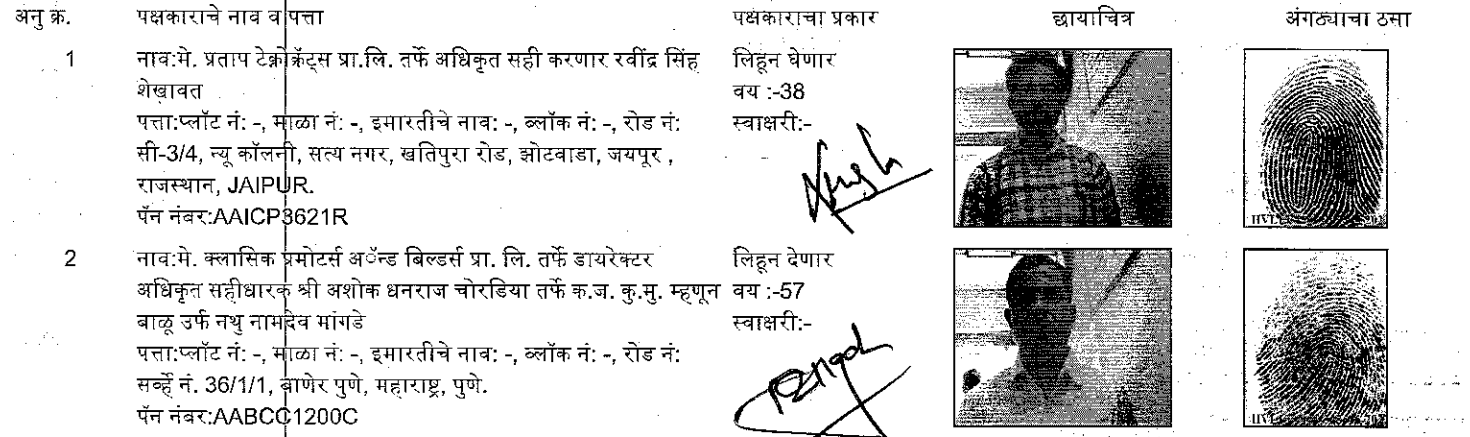 अनु क्र. पक्षकाराचे नाव व पत्ता पक्षकाराचा प्रकार छायाचित्र अंगठ्याचा ठसा
1 नाव:मे. प्रताप टेक्नोक्रॅट्स प्रा.लि. तर्फे अधिकृत सही करणार रवींद्र सिंह लिहून घेणार
शेखावत वय :-38
पत्ता:प्लॉट नं: -, माळा नं: -, इमारतीचे नाव: -, ब्लॉक नं: -, रोड नं: स्वाक्षरी:-
सी-3/4, न्यू कॉलनी, सत्य नगर, खतिपुरा रोड, झोटवाडा, जयपूर ,
राजस्थान, JAIPUR.
पॅन नंबर:AAICP3621R
2 नाव:मे. क्लासिक प्रमोटर्स अॅन्ड बिल्डर्स प्रा. लि. तर्फे डायरेक्टर लिहून देणार
अधिकृत सहीधारक श्री अशोक धनराज चोरडिया तर्फे क.ज. कु.मु. म्हणून वय :-57
बाळू उर्फ नथु नामदेव मांगडे स्वाक्षरी:-
पत्ता:प्लॉट नं: -, माळा नं: -, इमारतीचे नाव: -, ब्लॉक नं: -, रोड नं:
सर्व्हे नं. 36/1/1, बाणेर पुणे, महाराष्ट्र, पुणे.
पॅन नंबर:AABCC1200C